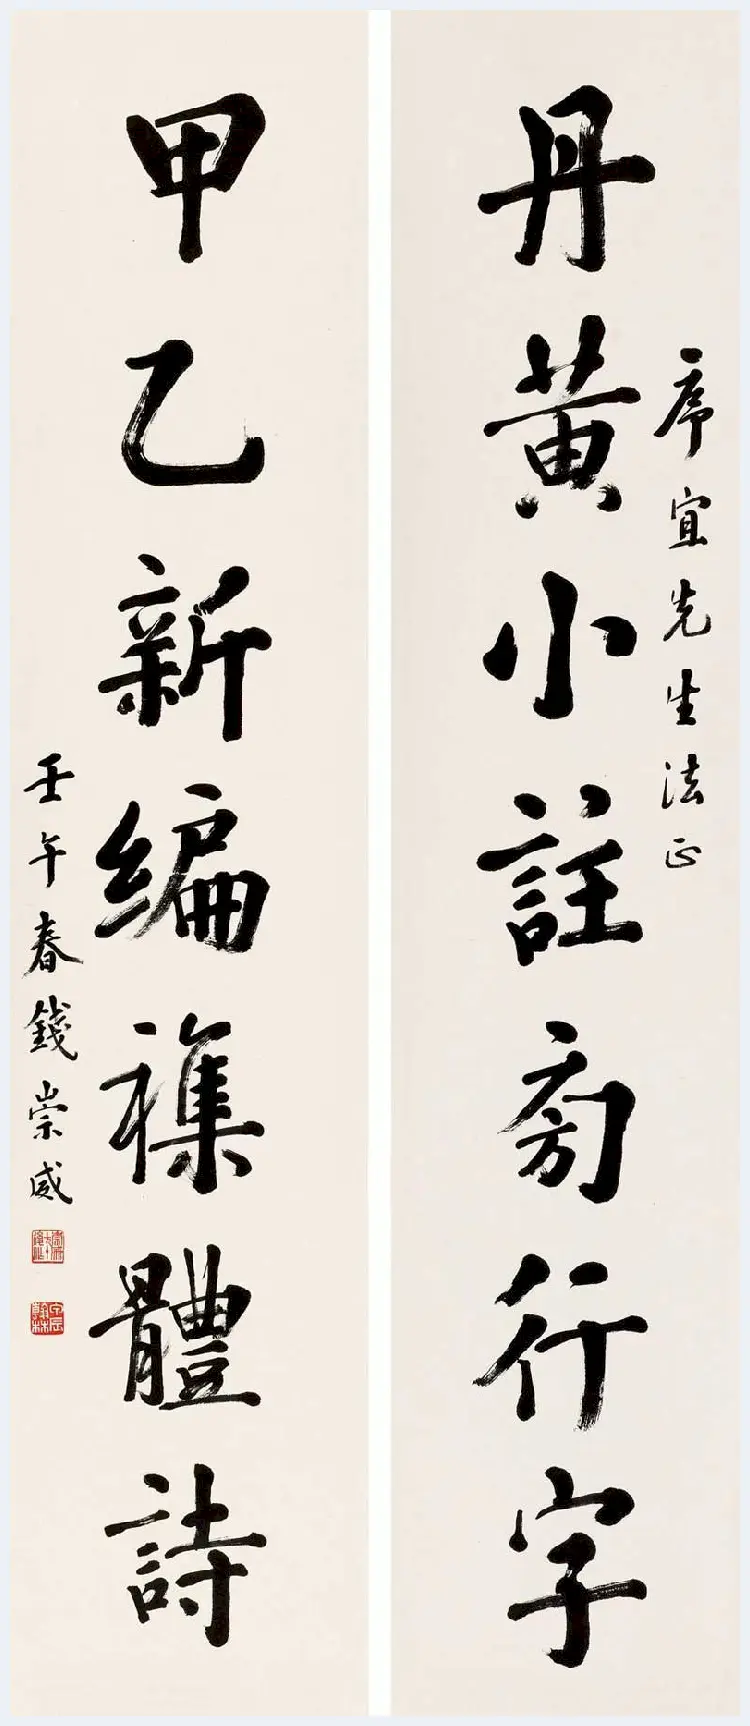 丹黃小註旁行字
序宜先生法正
甲乙新編襍體詩
壬午春錢崇威
甲辰翰林